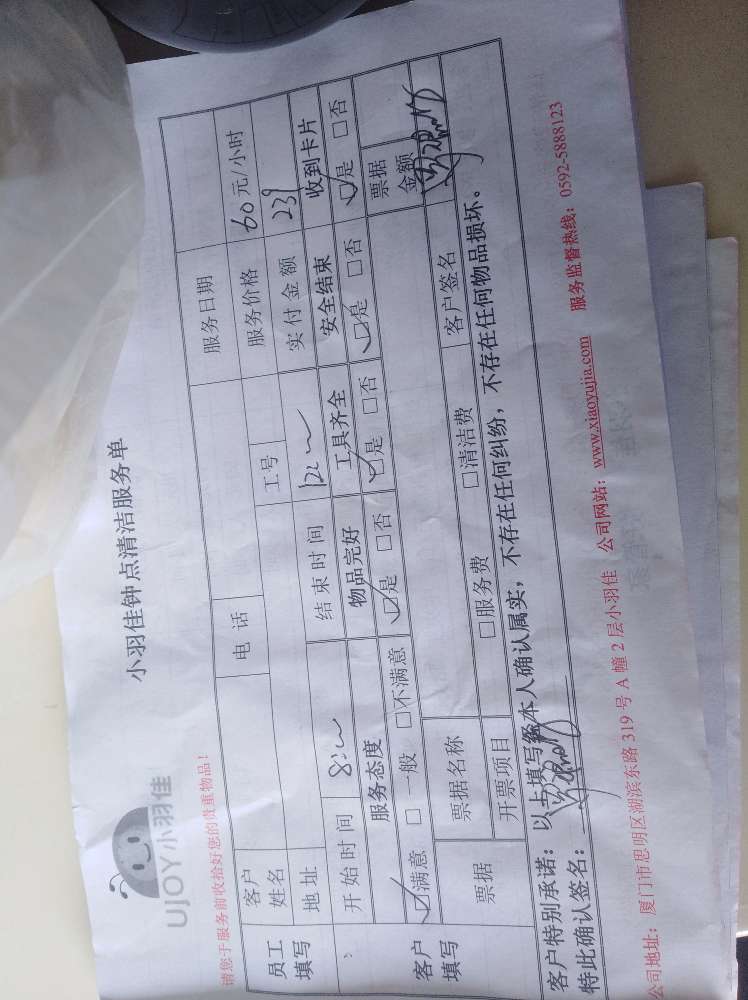 UJOY小羽佳
小羽佳钟点清洁服务单
请您于服务前收拾好您的贵重物品！
员工填写
客户姓名 电 话 服务日期
地 址 工号 服务价格 60元/小时
开始时间 结束时间 实付金额 239
服务态度 物品完好 工具齐全 安全结束 收到卡片
客户填写
☑满意 □一般 □不满意 ☑是 □否 ☑是 □否 ☑是 □否 ☑是 □否
票据 票据名称 票据金额
开票项目 □服务费 □清洁费 客户签名
客户特别承诺：以上填写经本人确认属实，不存在任何纠纷，不存在任何物品损坏。
特此确认签名：
公司地址：厦门市思明区湖滨东路 319 号 A 幢 2 层小羽佳 公司网站：www.xiaoyujia.com 服务监督热线：0592-5888123